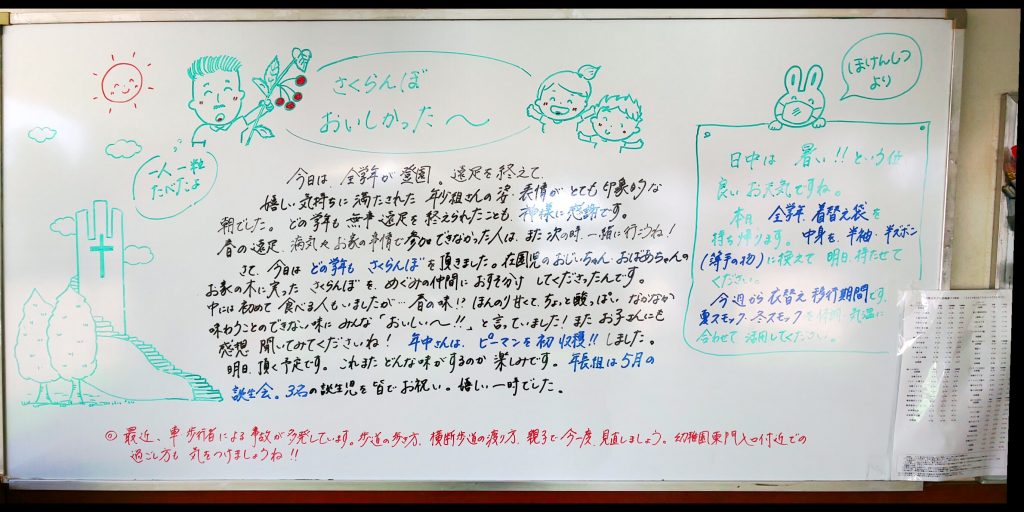 さくらんぼ
おいしかった〜
一人一粒
たべたよ
今日は、全学年が登園。遠足を終えて、
嬉しい気持ちに満たされた年少組さんの姿・表情がとても印象的な
朝でした。どの学年も無事遠足を終えられたことも、神様に感謝です。
春の遠足、病気やお家の事情で参加できなかった人は、また次の時、一緒に行こうね!
さて、今日はどの学年もさくらんぼを頂きました。在園児のおじいちゃんおばあちゃんの
お家の木に実ったさくらんぼを、めぐみの仲間におすそ分けしてくださったんです。
中には初めて食べる人もいましたが…春の味!!ほんのり甘くて、ちょっと酸っぱい なかなか
味わうことのできない味にみんな「おいしい〜!!」と言っていました!またお子さんにも
感想 聞いてみてくださいね!年中さんは、ピーマンを初収穫!!しました。
明日、頂く予定です。これまたどんな味がするのか楽しみです。年長組は5月の
誕生会。3名の誕生児を皆でお祝い。嬉しい一時でした。
◎最近、車、歩行者による事故が多発しています。歩道の歩き方、横断歩道の渡り方、親子で今一度、見直しましょう。幼稚園東門入口付近での
過ごし方も気をつけましょうね!!
ほけんしつ
より
日中は暑い!!という位
良いお天気ですね。
本日、全学年、着替え袋を
持ち帰ります。中身を、半袖・半ズボン
(薄手の物)に換えて明日、持たせて
ください。
今週から衣替え移行期間です。
夏スモック、冬スモックを 気温に
合わせて活用してください。